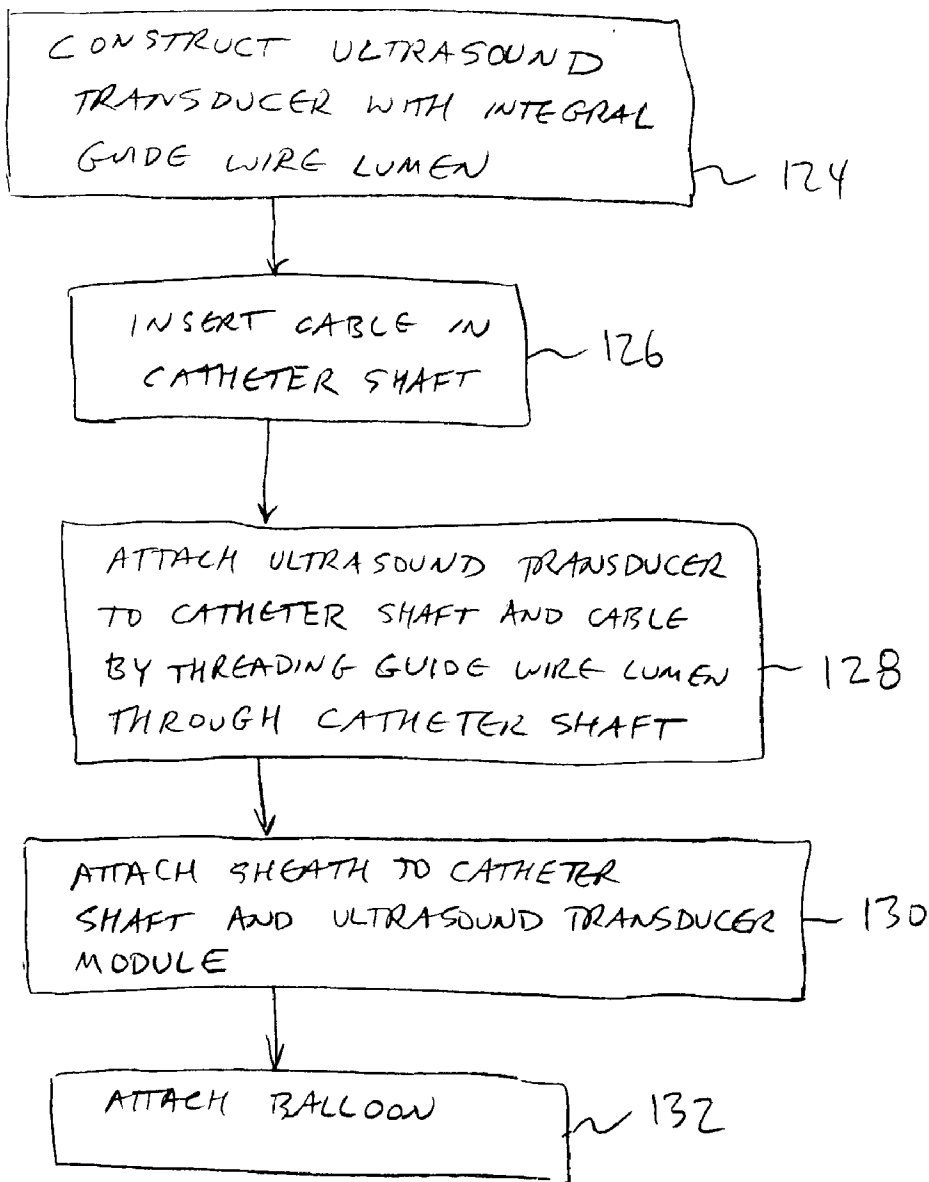 CONSTRUCT ULTRASOUND
TRANSDUCER WITH INTEGRAL
GUIDE WIRE LUMEN
124
INSERT CABLE IN
CATHETER SHAFT
126
ATTACH ULTRASOUND TRANSDUCER
TO CATHETER SHAFT AND CABLE
BY THREADING GUIDE WIRE LUMEN
THROUGH CATHETER SHAFT
128
ATTACH SHEATH TO CATHETER
SHAFT AND ULTRASOUND TRANSDUCER
MODULE
130
ATTACH BALLOON
132